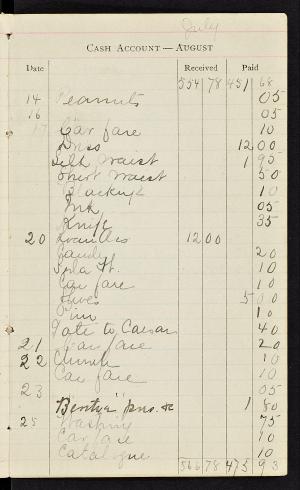 July
Cash Account — August
Date Received Paid
554 78 451 68
14 Peanuts 05
16 05
17 Car fare 10
Dress 12 00
Silk waist 1 95
Shirt waist 50
Blacking 10
Ink 05
Knife 35
20 12 00
Candy 20
Soda 10
Car fare 10
5 00
Pin 10
Gate to Caesar 40
21 Car fare 20
22 Church 10
Car fare 10
23 05
"Bentya" pns. &c 1 80
25 Washing 75
Car fare 10
Catalogue 10
566 78 475 93